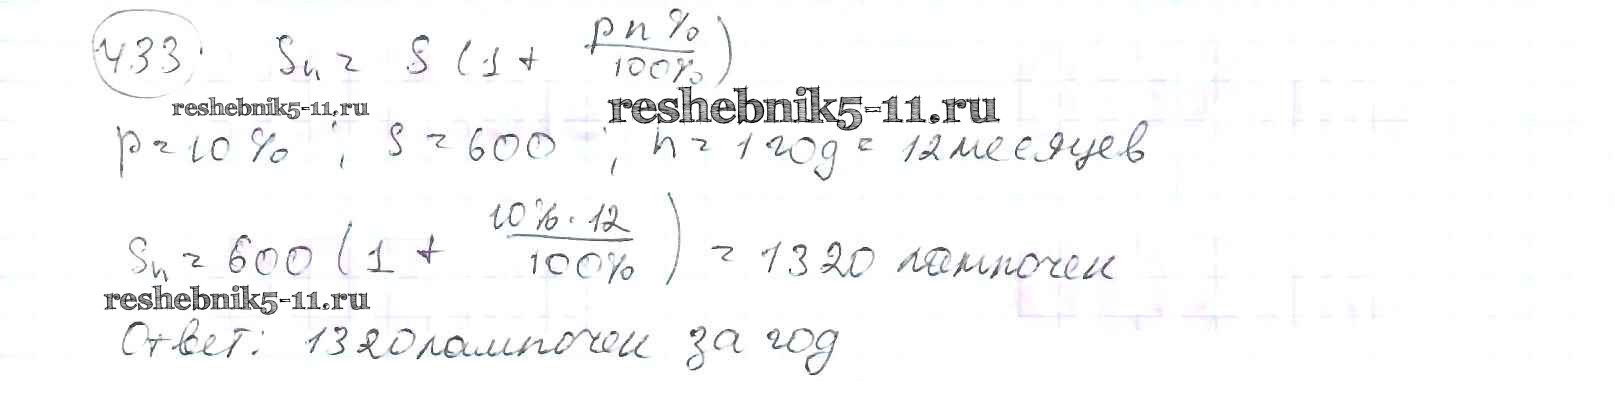 433. Sn = S (1 + pn%/100%)
reshebnik5-11.ru reshebnik5-11.ru
p = 10% ; S = 600 ; n = 1 год = 12 месяцев
Sn = 600 (1 + 10% · 12/100%) = 1320 лампочек
reshebnik5-11.ru
Ответ: 1320 лампочек за год